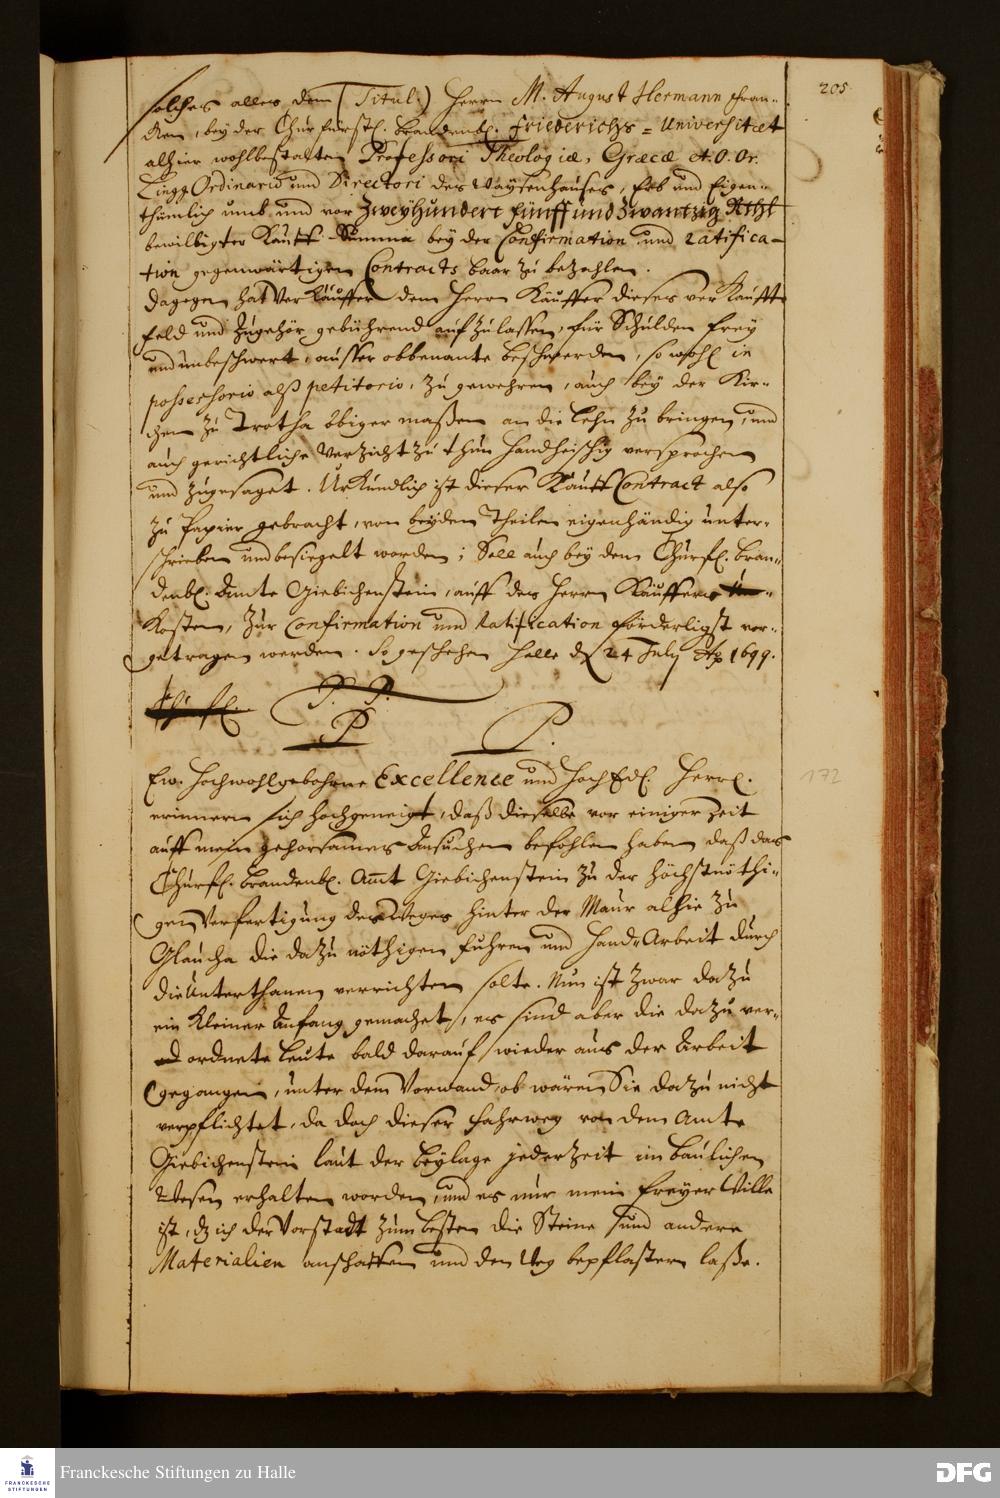 205
solches alles dem (Titul:) Herrn M. August Hermann Fran-
cken, bey der Churfürstl. Brandenb. Friederichs-Universitæt
alhier wohlbestalten Professori Theologiæ, Græcæ et O. Or.
Lingg Ordinario und Directori des Waysenhauses, Erb und Eigen-
thümlich umb und vor Zweyhundert fünff und Zwantzig Rthl
bewilligter Kauff-Summa bey der Confirmation und ratifica-
tion gegenwärtigen Contracts baar zu bezahlen.
Dagegen hat Verkäuffer dem Herrn Käuffer dieses verkauffte
Feld und Zugehör gebührend aufzulassen, für Schulden frey
und unbeschwert, ausser obbenante beschwerden, so wohl in
possessorio alß petitorio, zu gewehren, auch bey der Kir-
chen zu Trotha obiger maßen an die Lehn zu bringen, und
auch gerichtliche Verzicht zu thun handheischig versprochen
und zugesaget. Uhrkundlich ist dieser Kauff Contract also
zu Papier gebracht, von beyden Theilen eigenhändig unter-
schrieben und besiegelt worden; Soll auch bey dem Churfl. Bran-
denbl. Amte Giebichenstein, auff des Herrn Käuffers Un-
Kosten, zur Confirmation und Ratification förderligst vor-
getragen werden. So geschehen Halle d. 24 July Ao 1699.
P. P.
P P.
Ew. Hochwohlgebohrne Excellence und HochEdl. Herrl.
erinnern sich hochgeneigt, daß dieselbe vor einiger Zeit
auff mein gehorsames Ansuchen befohlen haben, daß das
Churfl. Brandenbl. Amt Giebichenstein zu der höchstnöthi-
gen Verfertigung des Weges hinter der Maur alhie zu
Glaucha die dazu nöthigen Fuhren und Hand-Arbeit durch
die Unterthanen verrichten solte. Nun ist zwar dazu
ein kleiner Anfang gemachet, es sind aber die dazu ver-
ordnete Leute bald darauf wieder aus der Arbeit
gegangen, unter dem Vorwand, ob wären Sie dazu nicht
verpflichtet, da doch dieser Fahrweg von dem Amte
Giebichenstein laut der Beylage jederzeit im baulichen
Wesen erhalten worden, und es nur mein freyer Wille
ist, dz ich der Vorstadt zum besten die Steine und andere
Materialien anschaffen und den Weg bepflastern laße.
172
FRANCKESCHE
STIFTUNGEN
Franckesche Stiftungen zu Halle
DFG